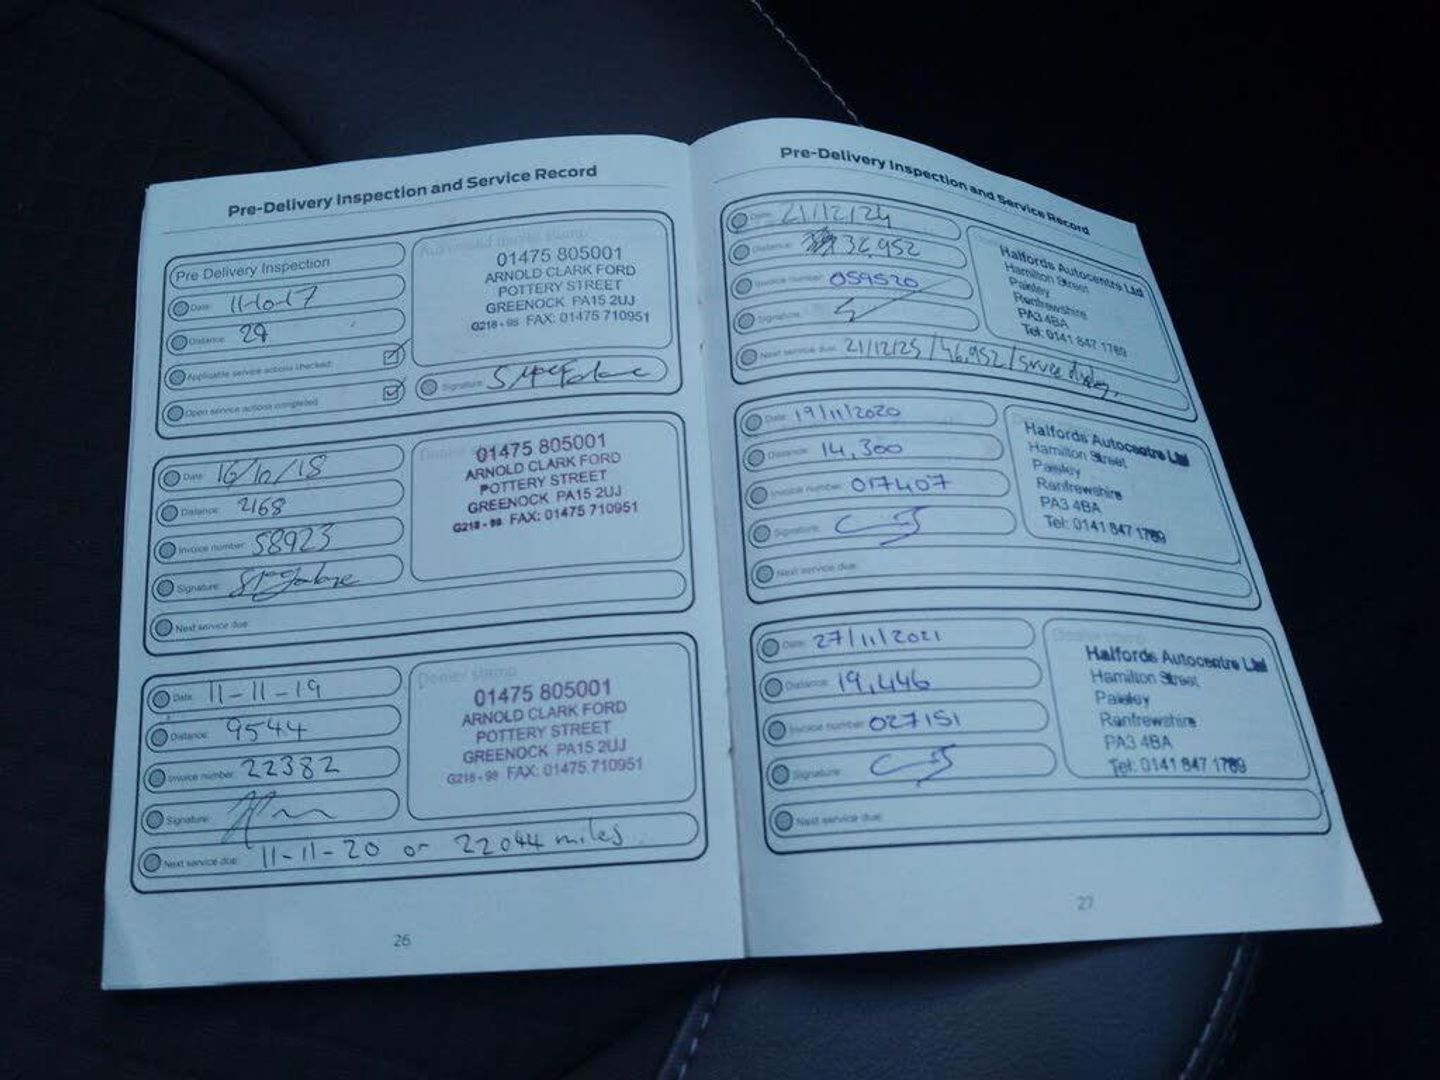 Pre-Delivery Inspection and Service Record
Pre Delivery Inspection
Date: 11-10-17
Distance: 29
Applicable service actions checked:
Open service actions completed:
01475 805001
ARNOLD CLARK FORD
POTTERY STREET
GREENOCK PA15 2UJ
G218 - 98 FAX: 01475 710951
Signature:
Date: 16/10/18
Distance: 2168
Invoice number: 58923
Signature:
Next service due:
01475 805001
ARNOLD CLARK FORD
POTTERY STREET
GREENOCK PA15 2UJ
G218 - 98 FAX: 01475 710951
Date: 11-11-19
Distance: 9544
Invoice number: 22382
Signature:
Next service due: 11-11-20 or 22044 miles
Dealer stamp
01475 805001
ARNOLD CLARK FORD
POTTERY STREET
GREENOCK PA15 2UJ
G218 - 98 FAX: 01475 710951
26
Pre-Delivery Inspection and Service Record
Date: 21/12/24
Distance: 36,952
Invoice number: 059520
Signature:
Next service due: 21/12/25 / 46,952 / Service display
Halfords Autocentre Ltd
Hamilton Street
Paisley
Renfrewshire
PA3 4BA
Tel: 0141 847 1789
Date: 19/11/2020
Distance: 14,300
Invoice number: 017407
Signature:
Next service due:
Halfords Autocentre Ltd
Hamilton Street
Paisley
Renfrewshire
PA3 4BA
Tel: 0141 847 1789
Date: 27/11/2021
Distance: 19,446
Invoice number: 027151
Signature:
Next service due:
Dealer stamp
Halfords Autocentre Ltd
Hamilton Street
Paisley
Renfrewshire
PA3 4BA
Tel: 0141 847 1789
27